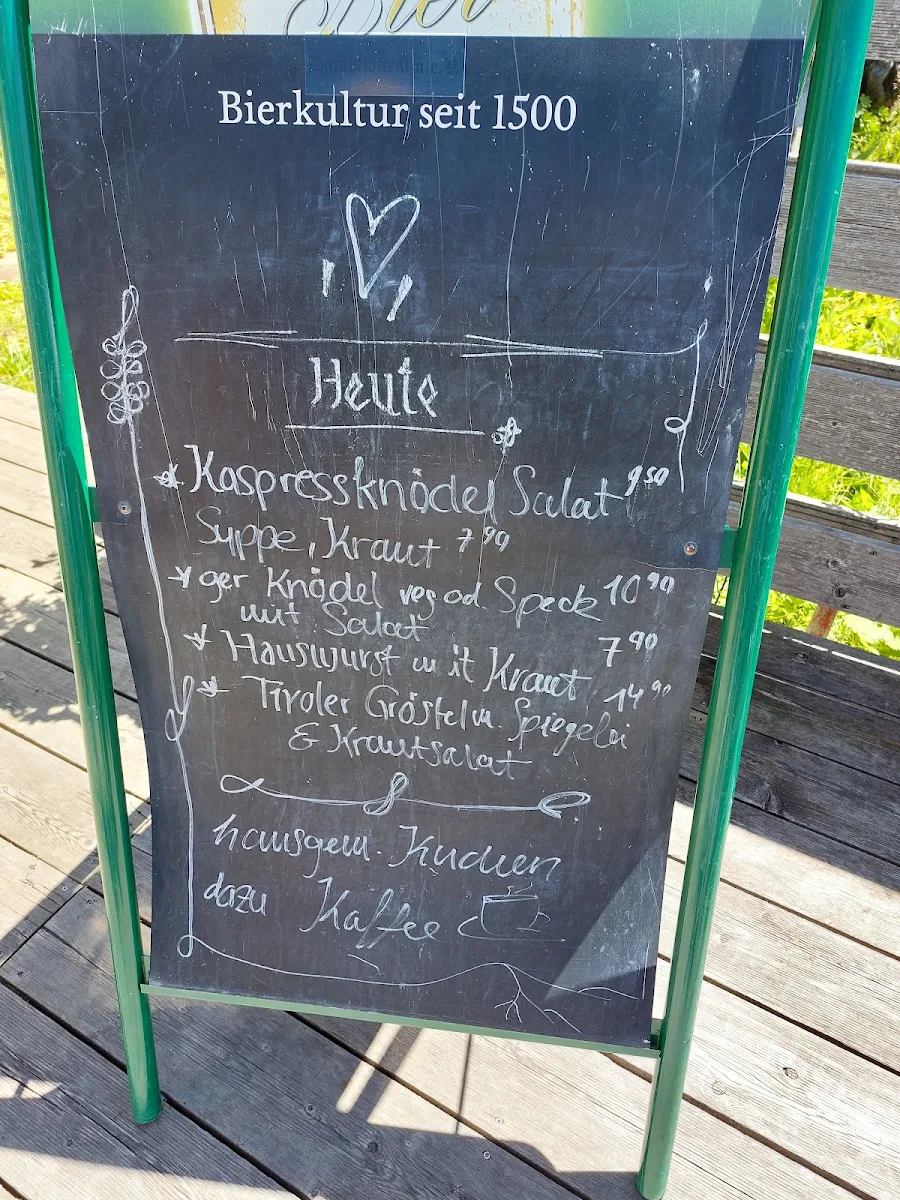 Bier
Bierkultur seit 1500
Heute
Kaspressknödel Salat 9,50
Suppe, Kraut 7 90
ger Knödel veg od. Speck 10 90
mit Salat
Hauswurst mit Kraut 7 90
Tiroler Gröstel m. Spiegelei 14 90
& Krautsalat
hausgem. Kuchen
dazu Kaffee